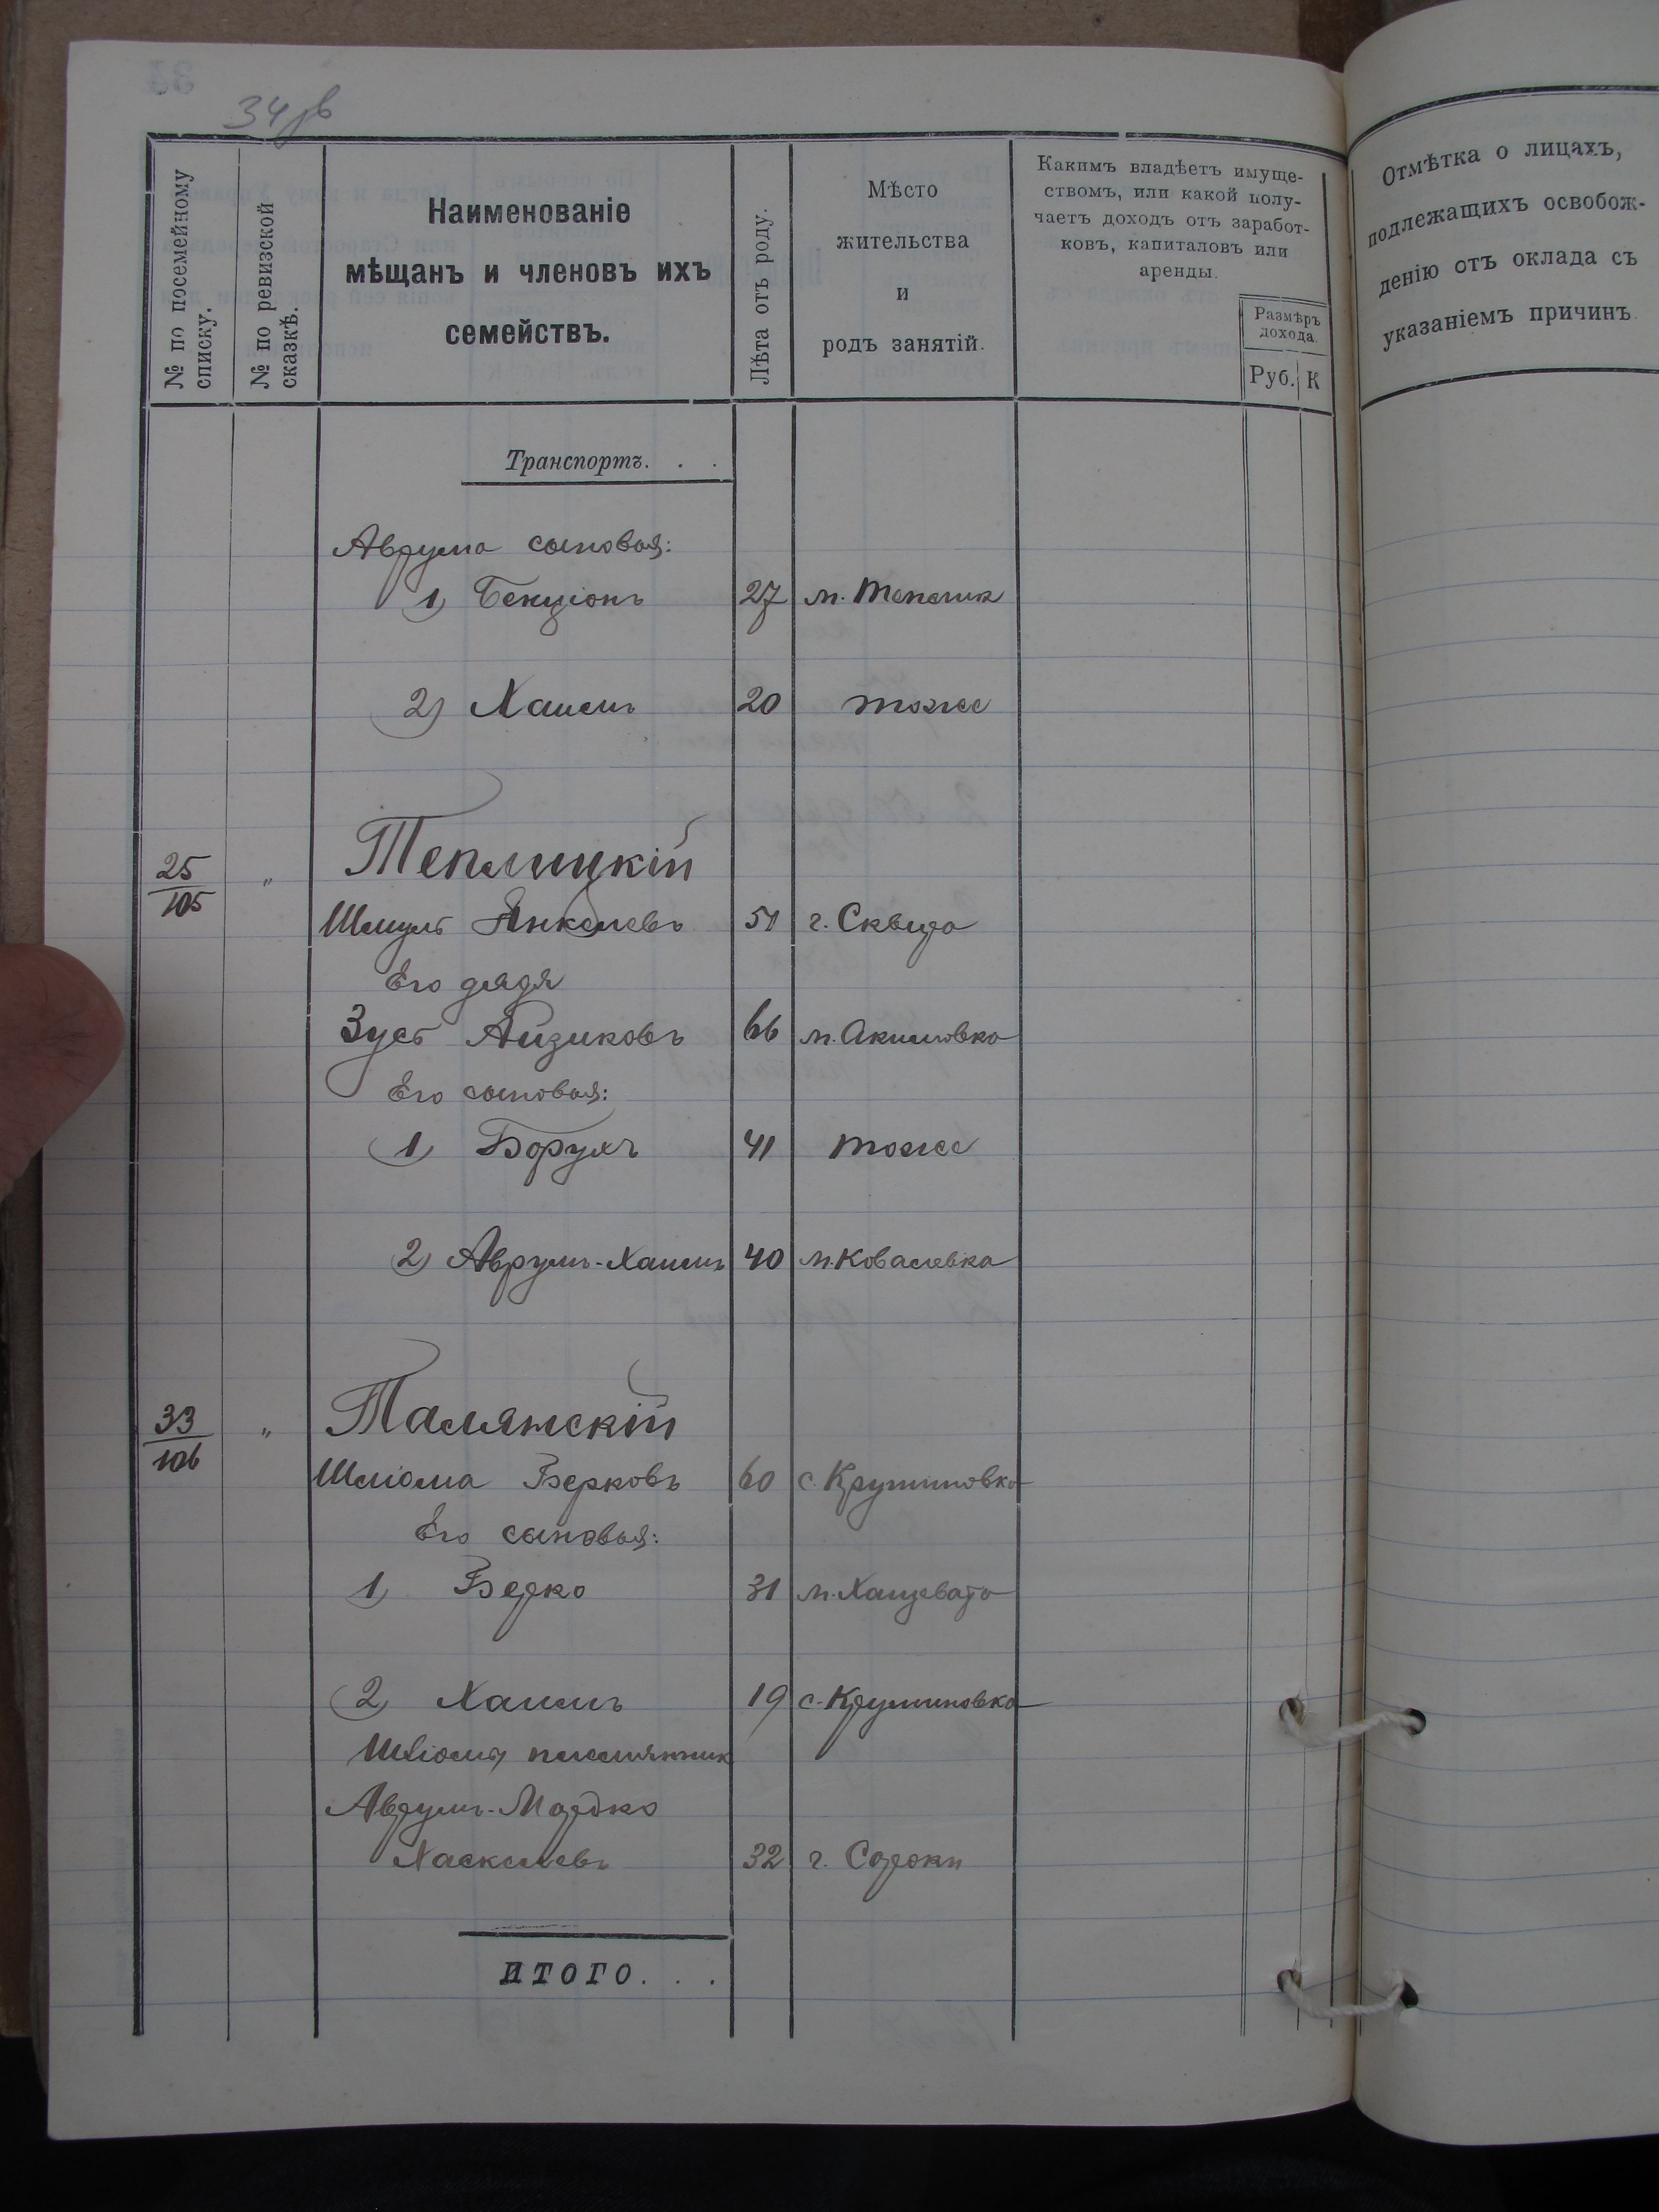 34 об
№ по посемейному списку.
№ по ревизской сказкѣ.
Наименованіе
мѣщанъ и членовъ ихъ
семействъ.
Лѣта отъ роду.
Мѣсто
жительства
и
родъ занятій.
Какимъ владѣетъ имуще-
ствомъ, или какой полу-
чаетъ доходъ отъ заработ-
ковъ, капиталовъ или
аренды.
Размѣръ
дохода.
Руб. К
Отмѣтка о лицахъ,
подлежащихъ освобож-
денію отъ оклада съ
указаніемъ причинъ.
Транспортъ. . .
Аврума сыновья:
1) Бенціонъ 27 м. Тепликъ
2) Хаимъ 20 тоже
25/105 " Теплицкій
Шмуль Янкелевъ 51 г. Сквира
Его дядя
Зусь Айзиковъ 66 м. Акимовка
Его сыновья:
1) Борухъ 41 тоже
2) Аврумъ-Хаимъ 40 м. Ковалевка
33/106 " Талянскій
Шліома Берковъ 60 с. Крутиновка
Его сыновья:
1) Берко 31 м. Хащевато
2) Хаимъ 19 с. Крутиновка
Шліомы племянник
Аврумъ-Мордко
Хаскелевъ 32 г. Сороки
ИТОГО. . .